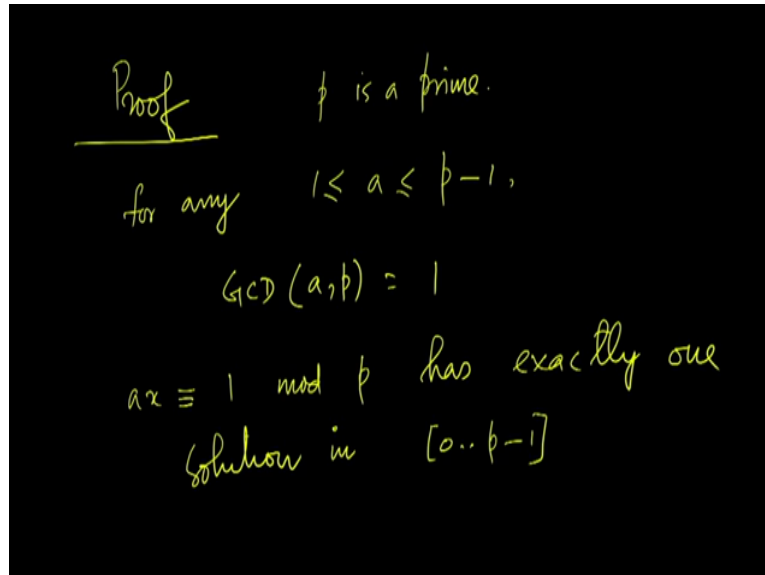 Proof p is a prime.
for any 1 ≤ a ≤ p-1,
GCD (a,p) = 1
ax ≡ 1 mod p has exactly one
solution in [0..p-1]